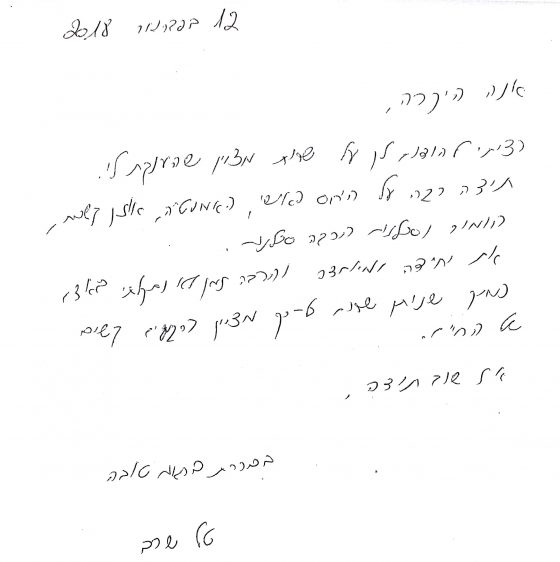 12 בפברואר 2018
אנה היקרה,
רציתי להודות לך על שרות מצוין שהענקת לי.
תודה רבה על היחס האישי, האמפטיה, אוזן קשבת,
הומור וסבלנות הרבה סבלנות.
את יחידה ומיוחדת והרבה זמן לא נתקלתי באדם
שניתן שרות כל-כך מצוין ברגעים קשים
של החיים.
שוב תודה,
בברכת בריאות טובה
טל שרב